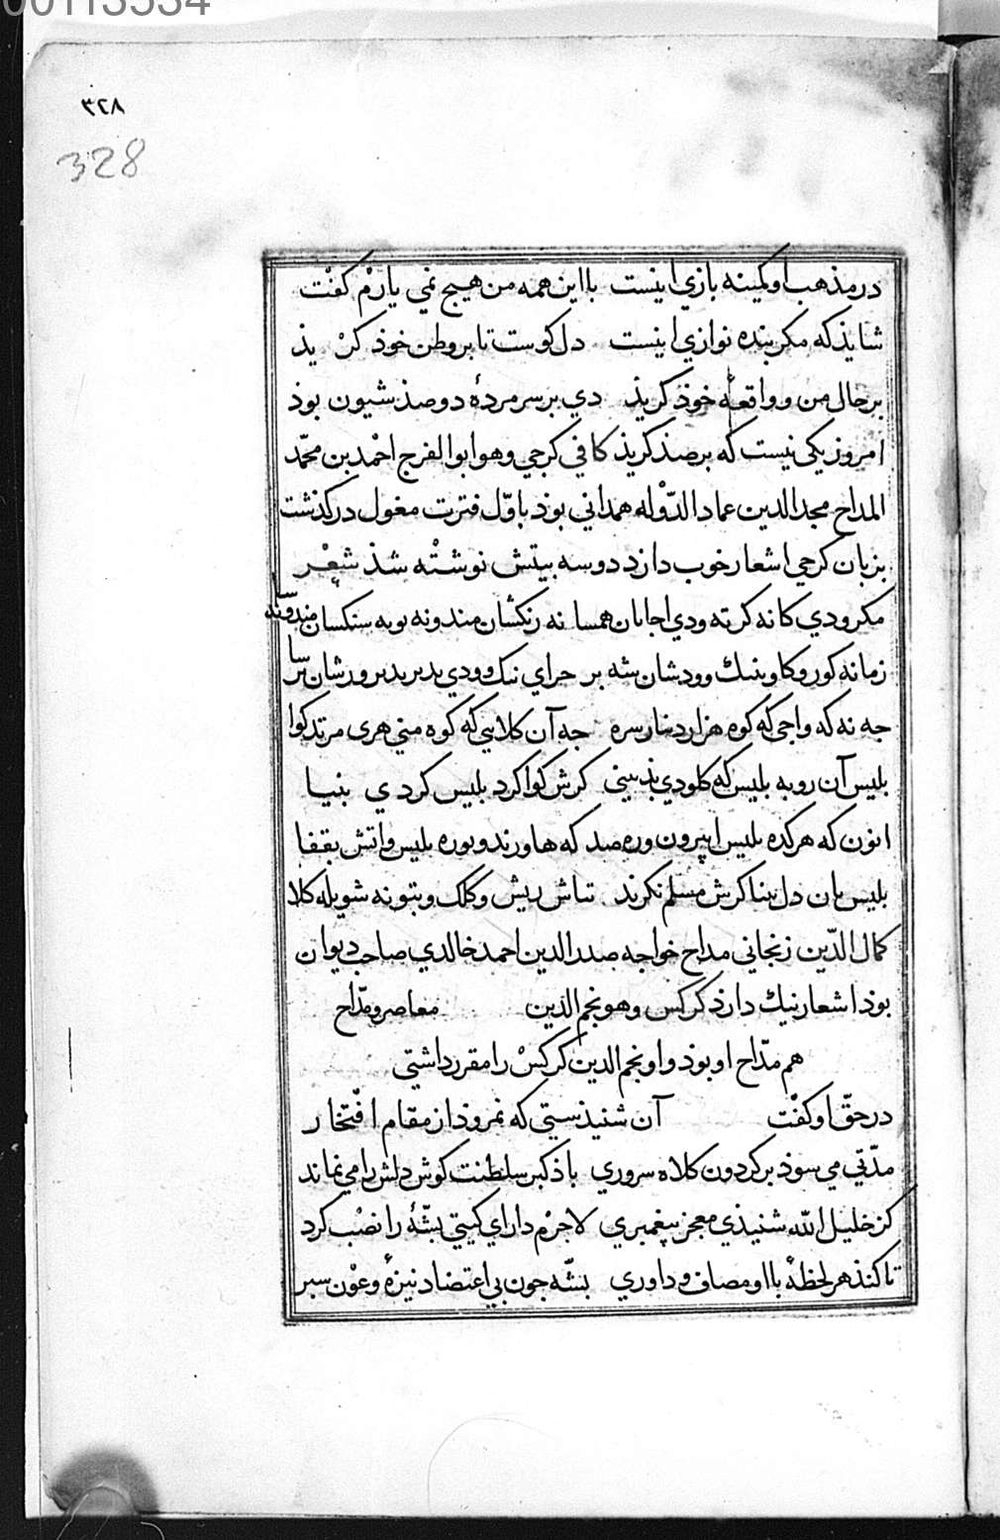 00113534
٣٢٨
328
در مذهب او کمینه بازي اینست با این همه من هیچ نمي یارم کفت
شایذ که مکر بنده نوازي اینست دل کوست تا بر وطن خوذ کر یذ
بر حال من و واقعهٔ خوذ کریذ دي بر سر مردهٔ دو صذ شیون بوذ
امروز یکی نیست که بر صذ کریذ کافي کرجي وهو ابوالفرج احمد بن محمّد
المداح مجد الدین عماد الدّوله همداني بوذ باوّل فترت مغول درکذشت
بزبان کرجي اشعار خوب دارد دو سه بیتش نوشته شذ شعر
مکرودي کانه کرته ودي اجابان همسانه رنکشان مندونه بوبه سنکسان مندونه
زمانه کوروکاو ودشان بشه بر حراي نیك وودي
جه نه که واجی که کوه هزار دینار سره جه آن کلابي که کوه مني هری مرتد کوا
بلیس آن روبه بلیس که کلودي بذبیني کرش کواکرد بلیس کردي بنیا
انون که هرکده بلیس اپیرون وره صد که هاورندوبوره بلیس واتش بقفا
بلیس بان دل بینا کرش مسلم نکرند تاش ریش وکلك وبتونه شویله کلا
کمال الدّین زنجاني مداح خواجه صدر الدین احمد خالدي صاحب دیوان
بوذ اشعار نیك دارذ کرکس وهو نجم الدین معاصر ومدّاح
هم مدّاح او بوذ و او نجم الدین کرکس را مقرر داشتي
در حقّ او کفت آن شنیذستي که نمروذ از مقام افتخار
مدّتي مي سوذ بر کردون کلاه سروري باذ کبر سلطنت کوش دلش را مي نماند
کز خلیل الله شنیذي معجز پیغمبري لاجرم داراي کیتي پشّهٔ را نصب کرد
تا کنذ هر لحظهٔ با او مصاف و داوري پشّه جون بي اعتضاد نیزهٔ وعون سپر